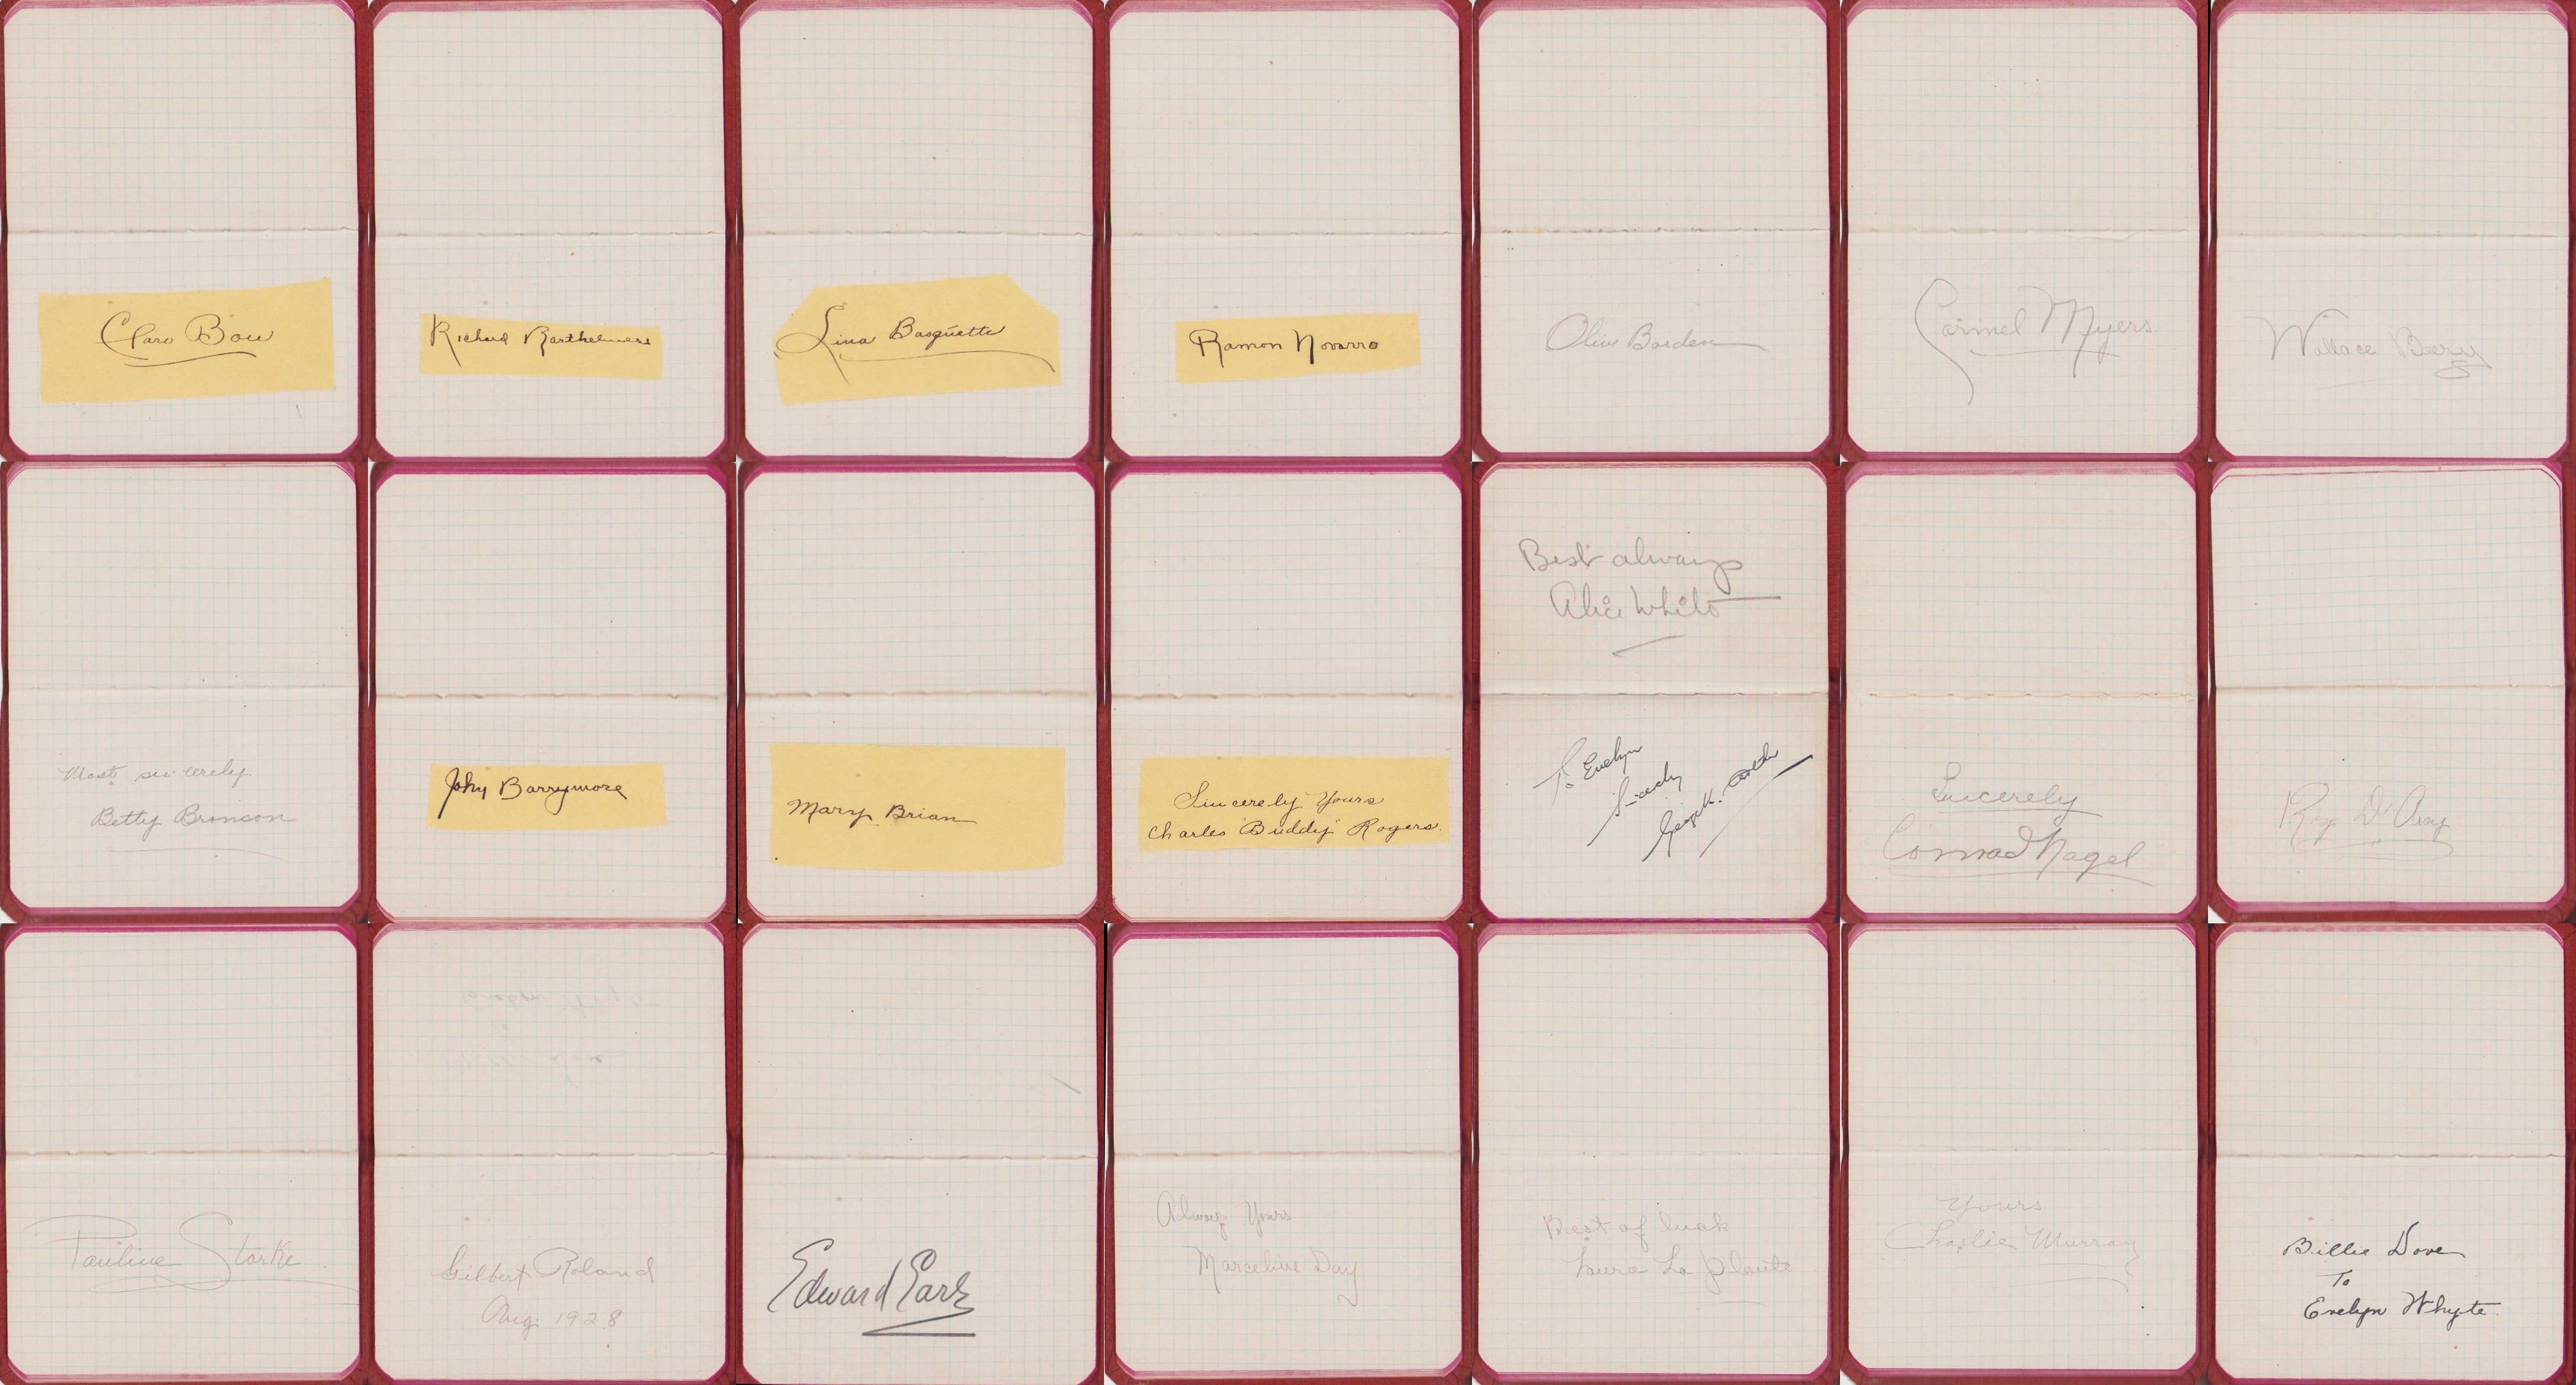 Clara Bow
Richard Barthelmess
Lina Basquette
Ramon Novarro
Olive Borden
Carmel Myers
Wallace Beery
Most sincerely
Betty Bronson
John Barrymore
Mary Brian
Sincerely Yours
Charles "Buddy" Rogers.
Best always
Alice White
To Evelyn
Sincerely
Sincerely
Conrad Nagel
Roy D'Arcy
Pauline Starke
Gilbert Roland
Aug. 1928
Edward Earle
Always Yours
Marceline Day
Best of luck
Laura La Plante
Yours
Charlie Murray
Billie Dove
To
Evelyn Whyte.